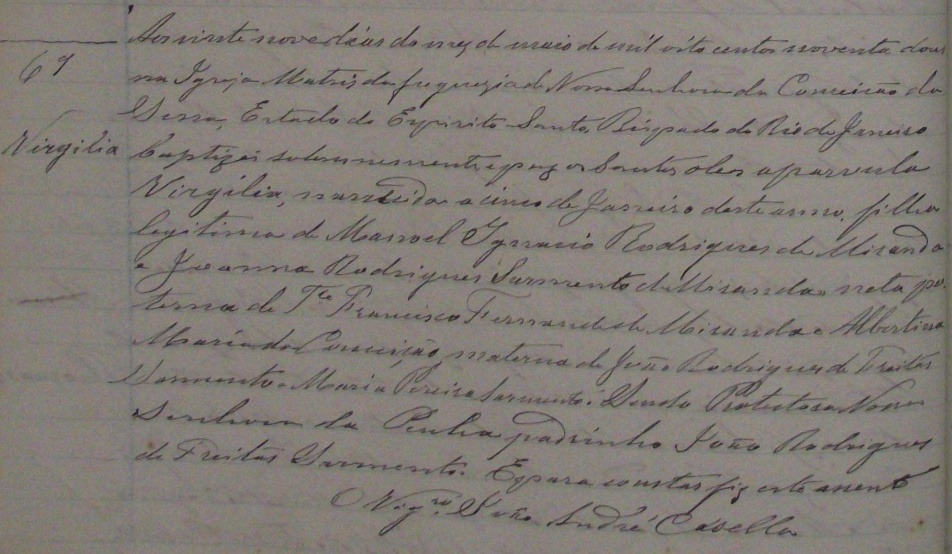 Aos vinte nove dias do mez de maio de mil oito centos noventa dous
69
na Igreja Matris da freguezia de Nossa Senhora da Conceição da
Serra, Estado do Espirito-Santo, Bispado do Rio de Janeiro
Virgilia
baptizei solemnemente e puz os Santos oleos a parvula
Virgilia, nascida a cinco de Janeiro deste anno, filha
legitima de Manoel Ignacio Rodrigues de Miranda
e Joanna Rodrigues Sarmento de Miranda, neta pa-
terna de Te Francisco Fernandes de Miranda e Albertina
Maria da Conceição, materna de João Rodrigues de Freitas
Sarmento e Maria Pereira Sarmento. Sendo Protectora Nossa
Senhora da Penha, padrinho João Rodrigues
de Freitas Sarmento. E para constar fiz este assento
O Vigro João André Casella